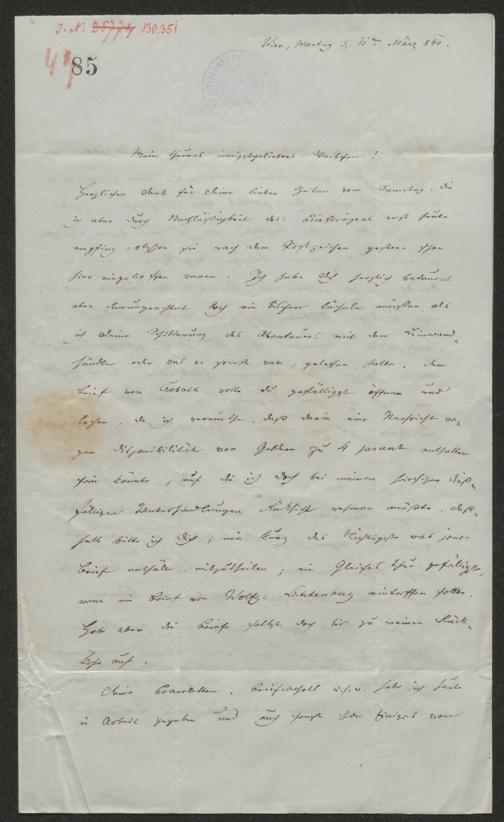 I. N. 25774 130.351
47
85
Wien, Montag d. 11ten März 844.
Mein theures innigstgeliebtes Weibchen!
Herzlichen Dank für deine lieben Zeilen vom Samstag, die
ich aber durch Nachlässigkeit des Briefträgers erst heute
empfing, obschon sie nach dem Postzeichen gestern schon
hier eingetroffen waren. Ich habe dich herzlich bedauert
aber demungeachtet doch ein bischen lächeln müssen als
ich deine Schilderung des Abenteuers mit dem Leinwand-
händler oder was er sonst war, gelesen habe. Den
Brief von wolle du gefälligst öffnen und
lesen, da ich vermuthe, daß darin eine Nachricht we-
gen Disponibilität von Geldern zu 4 percent enthalten
sein könnte, auf die ich doch bei meinen hiesigen dieß-
fälligen Unterhandlungen Rücksicht nehmen müßte. Deß-
halb bitte ich dich, mir kurz das Wichtigste was jener
Brief enthält, mitzutheilen; ein Gleiches thue gefälligst,
wenn ein Brief von Wolfg: Lichtenberg eintreffen sollte.
Hebe aber die Briefe selbst doch bis zu meiner Rück-
kehr auf.
Deine Bracelette, u.s.w. habe ich heute
in Arbeit gegeben und auch sonst schon Einiges von